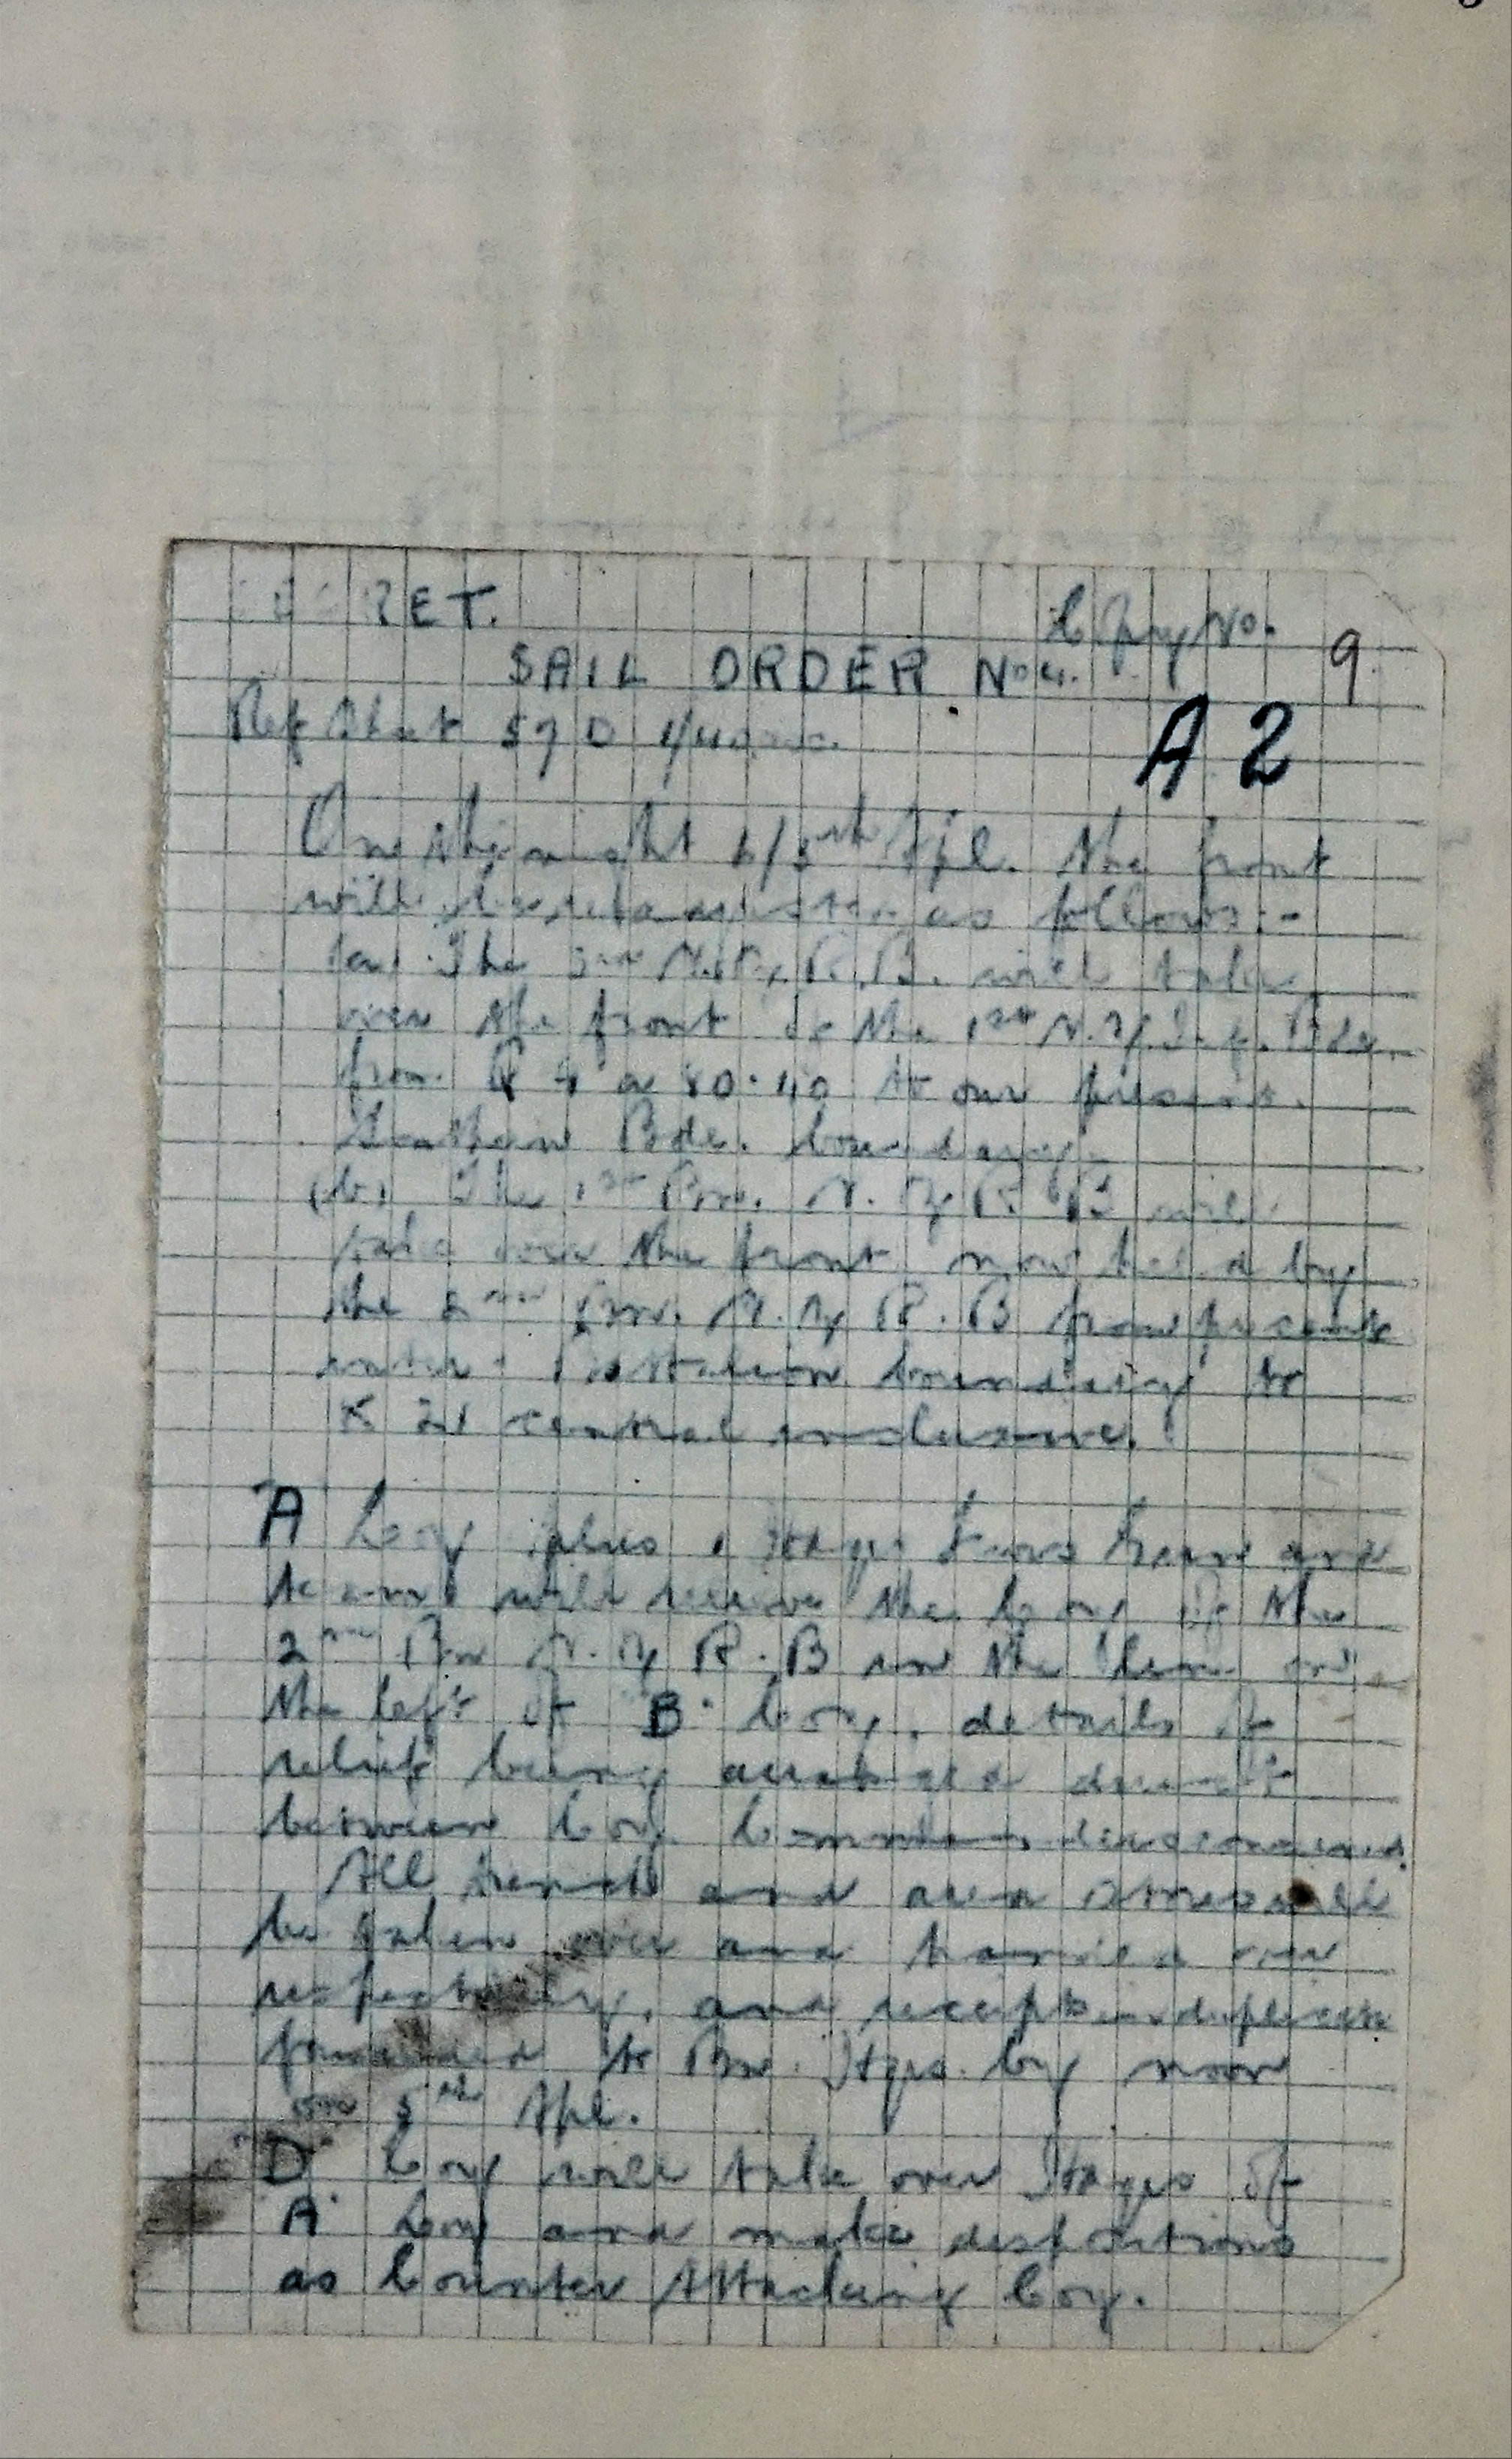 RET.
Copy No. 9
SAIL ORDER No 4.
A 2
Ref Sheet 57 D
On the night 4/5th Apl. The front
will be as follows :-
(a) The 3rd N.Z. R.B. will take
over the front of the 1st N.Z. Bde.
from Q 4 a 80.40 to our present
Southern Bde. boundary.
(b) The 1st Bn. N. Z R. B will
take over the front now held by
the 2nd Bn. N. Z R. B from present
inter Battalion boundary to
K 21 central inclusive.
A Coy plus 1 and
team will relieve the Coy of the
2nd Bn N. Z R. B in the line on
the left of B Coy, details of
relief being arranged direct
between Coy Commanders concerned.
All trench and area stores will
be taken over and handed over
respectively, and receipts in duplicate
forwarded to Bn. Hqrs. by noon
on 5th Apl.
"D" Coy will take over Hqrs of
A Coy and make dispositions
as Counter Attacking Coy.